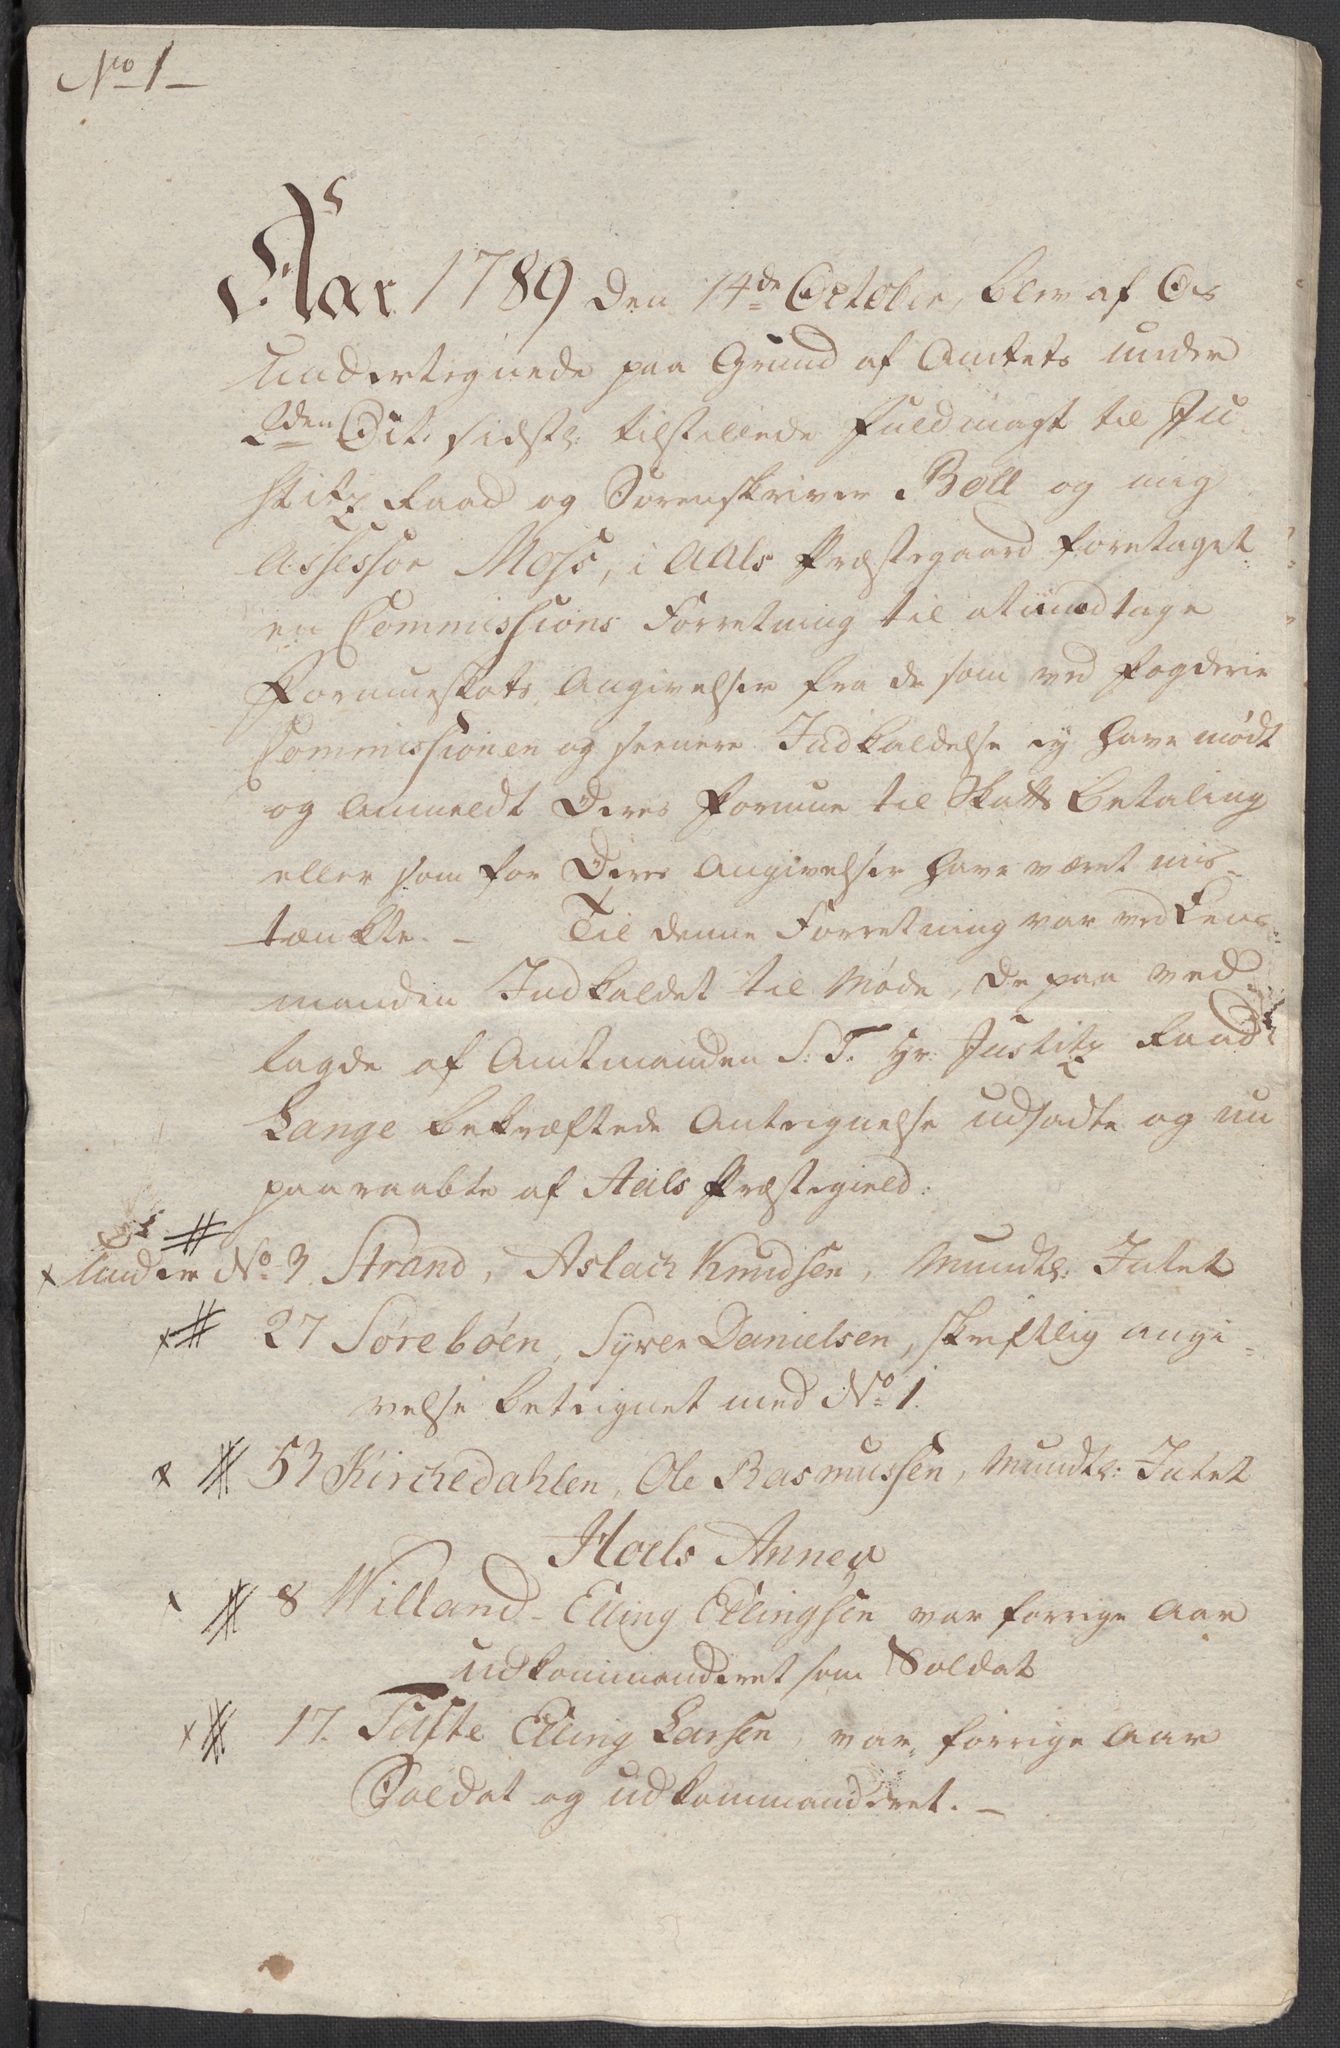 No 1
Aar 1789 den 14de October, blev af Os
Undertegnede paa Grund af Amtets under
2den Oct: sidstl: tilstillede Fuldmagt til Ju
stitz Raad og Sorenskriver Bøll og mig
Assessor Moss, i Aals Præstegaard foretaget
en Commissions Forretning til at imodtage
Formueskats Angivelser fra de som ved Fogderie
Commissionen og seenere Indkaldelse ey have mødt
og Anmeldt Deres Formue til Skatts Betaling
eller som for Deres Angivelser have været mis-
tænkte. - Til denne Forretning var ved Lens-
manden Indkaldet til Møde, de paa ved
lagde af Amtmanden S: T: Hr: Justitz Raad
Lange bekræftede Antegnelse udsadte og nu
paaraabte af Aals Præstegield:
Under No 3 Strand, Aslach Knudsen, Mundtl: Intet
27 Søreböen, Syver Danielsen, skriftlig angi-
velse betegnet med No 1.
53 Kirchedahlen, Ole Rasmussen, Mundtl: Intet
Hoels Annex
8 Willand - Elling Ellingsen var forrige Aar
udkommanderet som Soldat
17. Tufte Elling Larsen, var forrige Aar
Soldat og udkommanderet. -